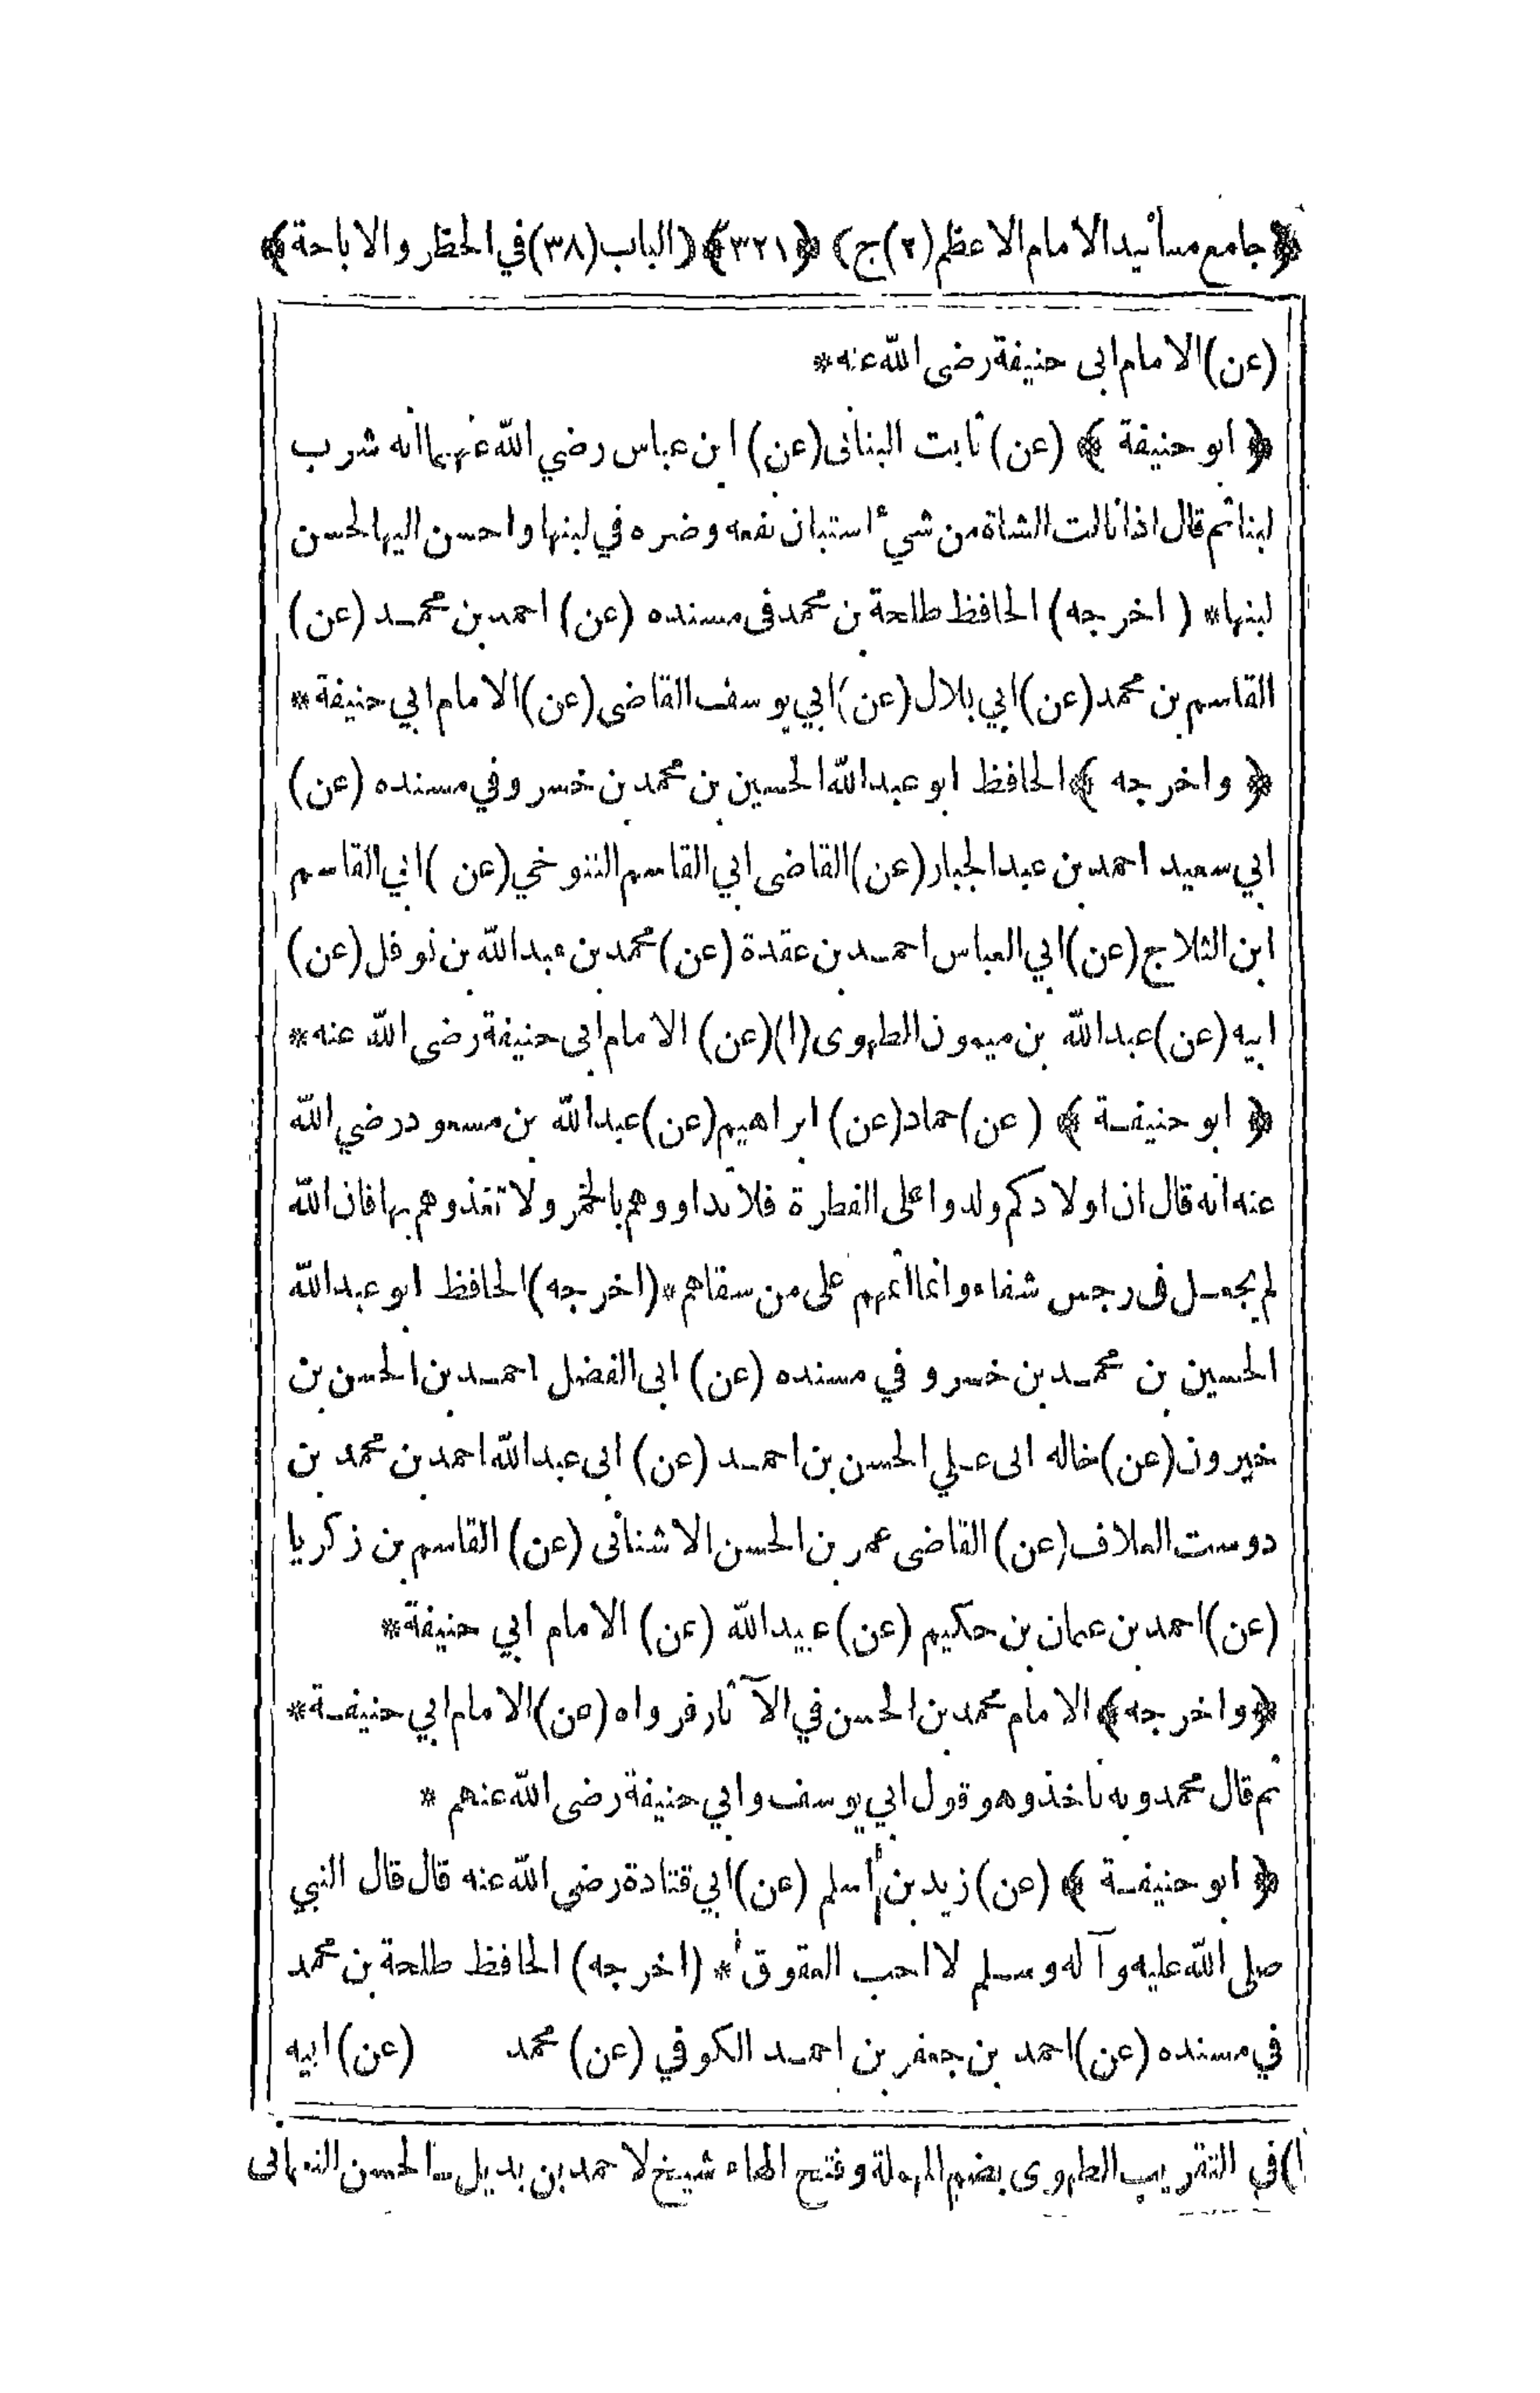 ﴿جامع مسانيد الامام الاعظم (٢) ج﴾ ﴿٣٢١﴾ ﴿الباب (٣٨) في الحظر والاباحة﴾
(عن) الامام ابى حنيفة رضى الله عنه *
﴿ ابو حنيفة ﴾ (عن) ثابت البنانى (عن) ابن عباس رضي الله عنهما انه شرب
لبنا ثم قال اذا نالت الشاة من شيء استبان نفعه وضره في لبنها واحسن اليها لحسن
لبنها * ( اخرجه ) الحافظ طلحة بن محمد فى مسنده (عن) احمد بن محمد (عن)
القاسم بن محمد (عن) ابي بلال (عن) ابي يوسف القاضى (عن) الامام ابي حنيفة *
﴿ واخرجه ﴾ الحافظ ابو عبد الله الحسين بن محمد بن خسرو في مسنده (عن)
ابي سعيد احمد بن عبد الجبار (عن) القاضى ابي القاسم التنوخي (عن) ابي القاسم
ابن الثلاج (عن) ابي العباس احمد بن عقدة (عن) محمد بن عبد الله بن نوفل (عن)
ابيه (عن) عبد الله بن ميمون الطهوى (١) (عن) الامام ابى حنيفة رضى الله عنه *
﴿ ابو حنيفة ﴾ (عن) حماد (عن) ابراهيم (عن) عبد الله بن مسعود رضي الله
عنه انه قال ان اولادكم ولدوا على الفطرة فلا تداووهم بالخمر ولا تغذوهم بها فان الله
لم يجعل فى رجس شفاء وانما اثمهم على من سقاهم * (اخرجه) الحافظ ابو عبد الله
الحسين بن محمد بن خسرو في مسنده (عن) ابى الفضل احمد بن الحسن بن
خيرون (عن) خاله ابى علي الحسن بن احمد (عن) ابى عبد الله احمد بن محمد بن
دوست العلاف (عن) القاضى عمر بن الحسن الاشنانى (عن) القاسم بن زكريا
(عن) احمد بن عثمان بن حكيم (عن) عبيد الله (عن) الامام ابي حنيفة *
﴿واخرجه﴾ الامام محمد بن الحسن في الآثار فرواه (عن) الامام ابي حنيفة *
ثم قال محمد وبه ناخذ وهو قول ابي يوسف وابي حنيفة رضى الله عنهم *
﴿ ابو حنيفة ﴾ (عن) زيد بن أسلم (عن) ابي قتادة رضى الله عنه قال قال النبي
صلى الله عليه وآله وسلم لا احب العقوق * (اخرجه) الحافظ طلحة بن محمد
في مسنده (عن) احمد بن جعفر بن احمد الكوفي (عن) محمد (عن) ابيه
١) في التقريب الطهوى بضم المهملة وفتح الهاء شيخ لاحمد بن بديل الحسن النعمانى